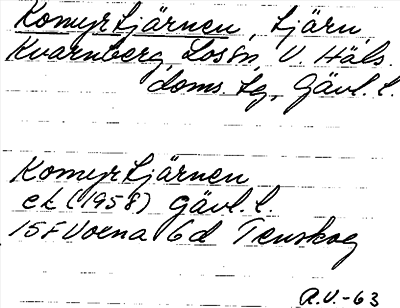 Komyrtjärnen, tjärn
Kvarnberg, Los sn, V. Häls.
doms. lg, Gävl. l.
Komyrtjärnen
ek (1958) Gävl. l.
15F Voxna 6d Tenskog
R.V.-63